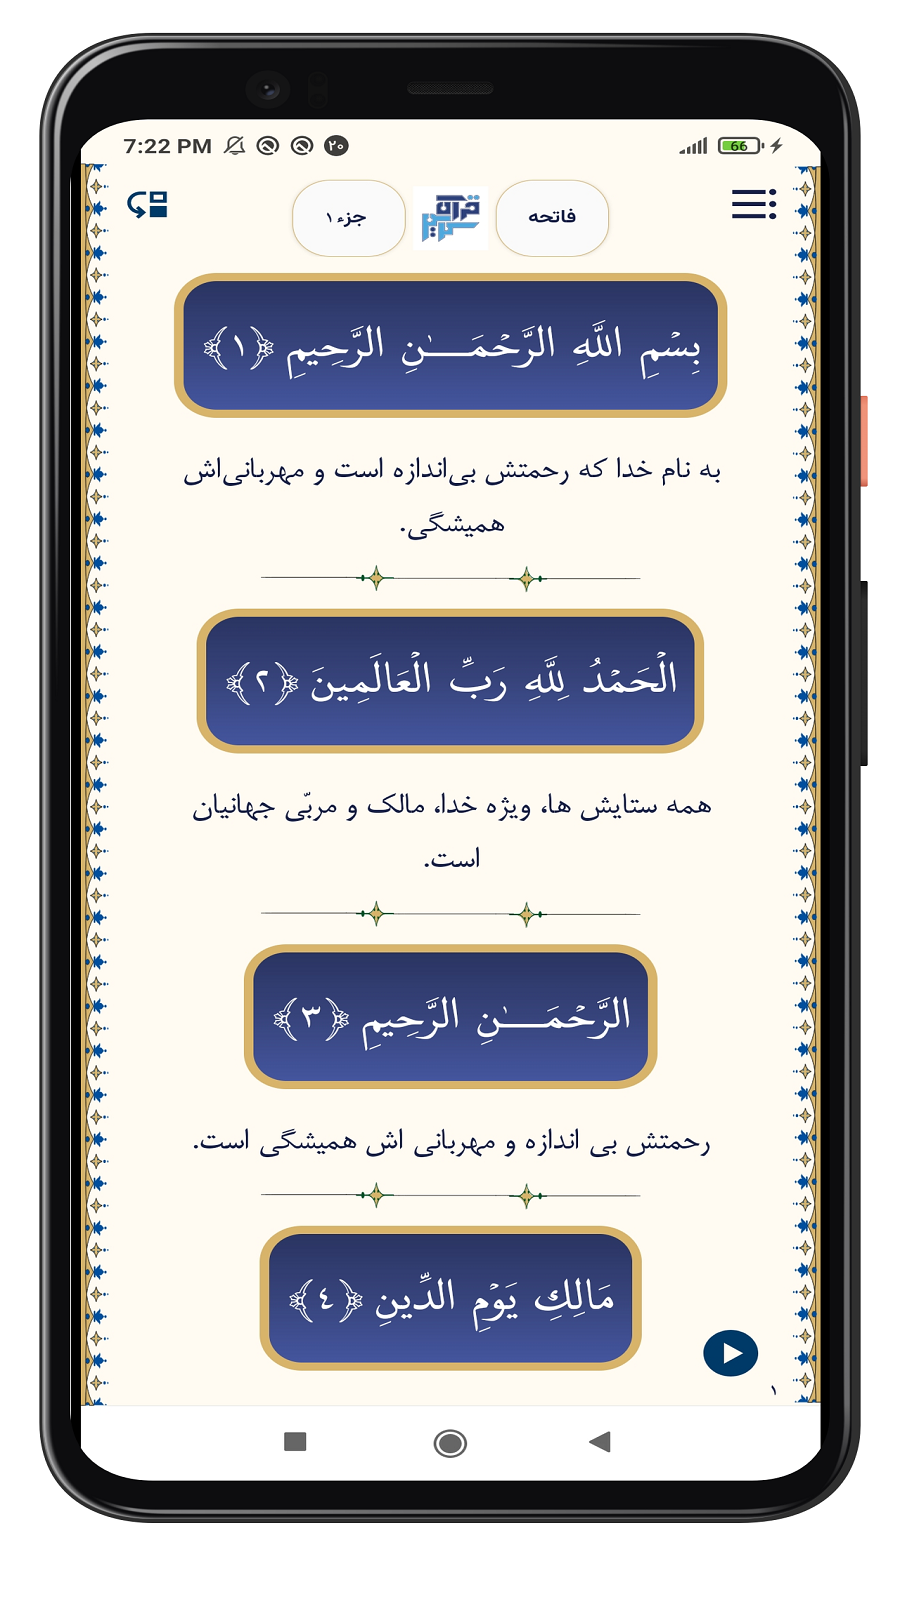 7:22 PM
۲۰
66
فاتحه
قرآن
جزء ۱
بِسْمِ اللَّهِ الرَّحْمَـٰنِ الرَّحِيمِ ﴿١﴾
به نام خدا که رحمتش بی‌اندازه است و مهربانی‌اش
همیشگی.
الْحَمْدُ لِلَّهِ رَبِّ الْعَالَمِينَ ﴿٢﴾
همه ستایش ها، ویژه خدا، مالک و مربّی جهانیان
است.
الرَّحْمَـٰنِ الرَّحِيمِ ﴿٣﴾
رحمتش بی اندازه و مهربانی اش همیشگی است.
مَالِكِ يَوْمِ الدِّينِ ﴿٤﴾
۱